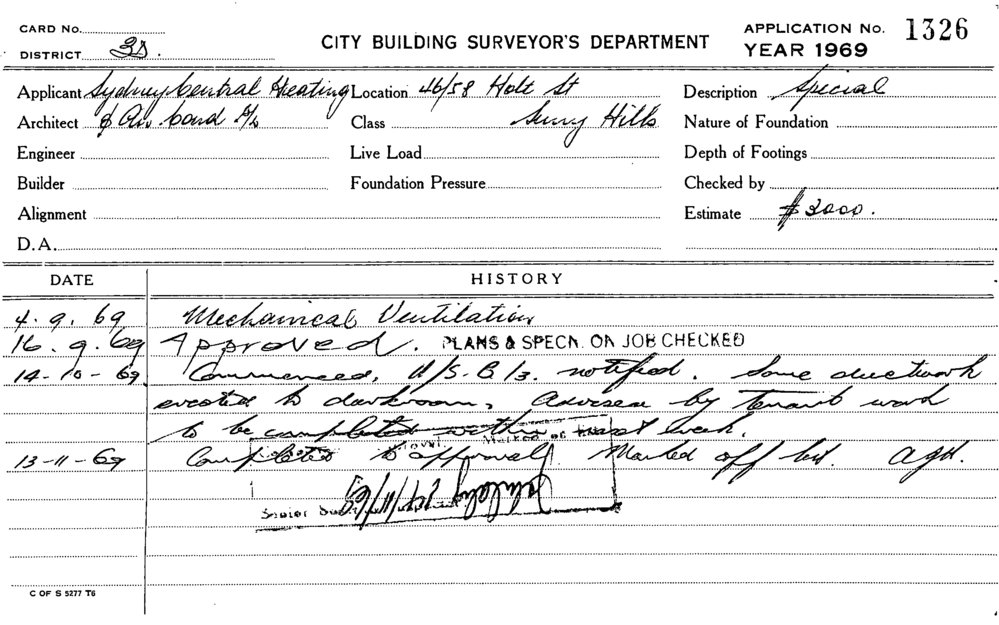 CARD No.
DISTRICT 3D.
CITY BUILDING SURVEYOR'S DEPARTMENT
APPLICATION No. 1326
YEAR 1969
Applicant Sydney Central Heating
Location 46/58 Holt St
Description Special
Architect & Air cond P/L
Class Surry Hills
Nature of Foundation
Engineer
Live Load
Depth of Footings
Builder
Foundation Pressure
Checked by
Alignment
Estimate $3000.
D.A.
DATE
HISTORY
4.9.69 Mechanical Ventilation
16.9.69 Approved. PLANS & SPECN. ON JOB CHECKED
14-10-69 Commenced, notified. Some ductwork
erected to darkroom, Advised by tenant work
to be completed within next week.
13-11-69 Completed to approval. Marked off list.
Senior
24/11/69
C OF S 5277 T6